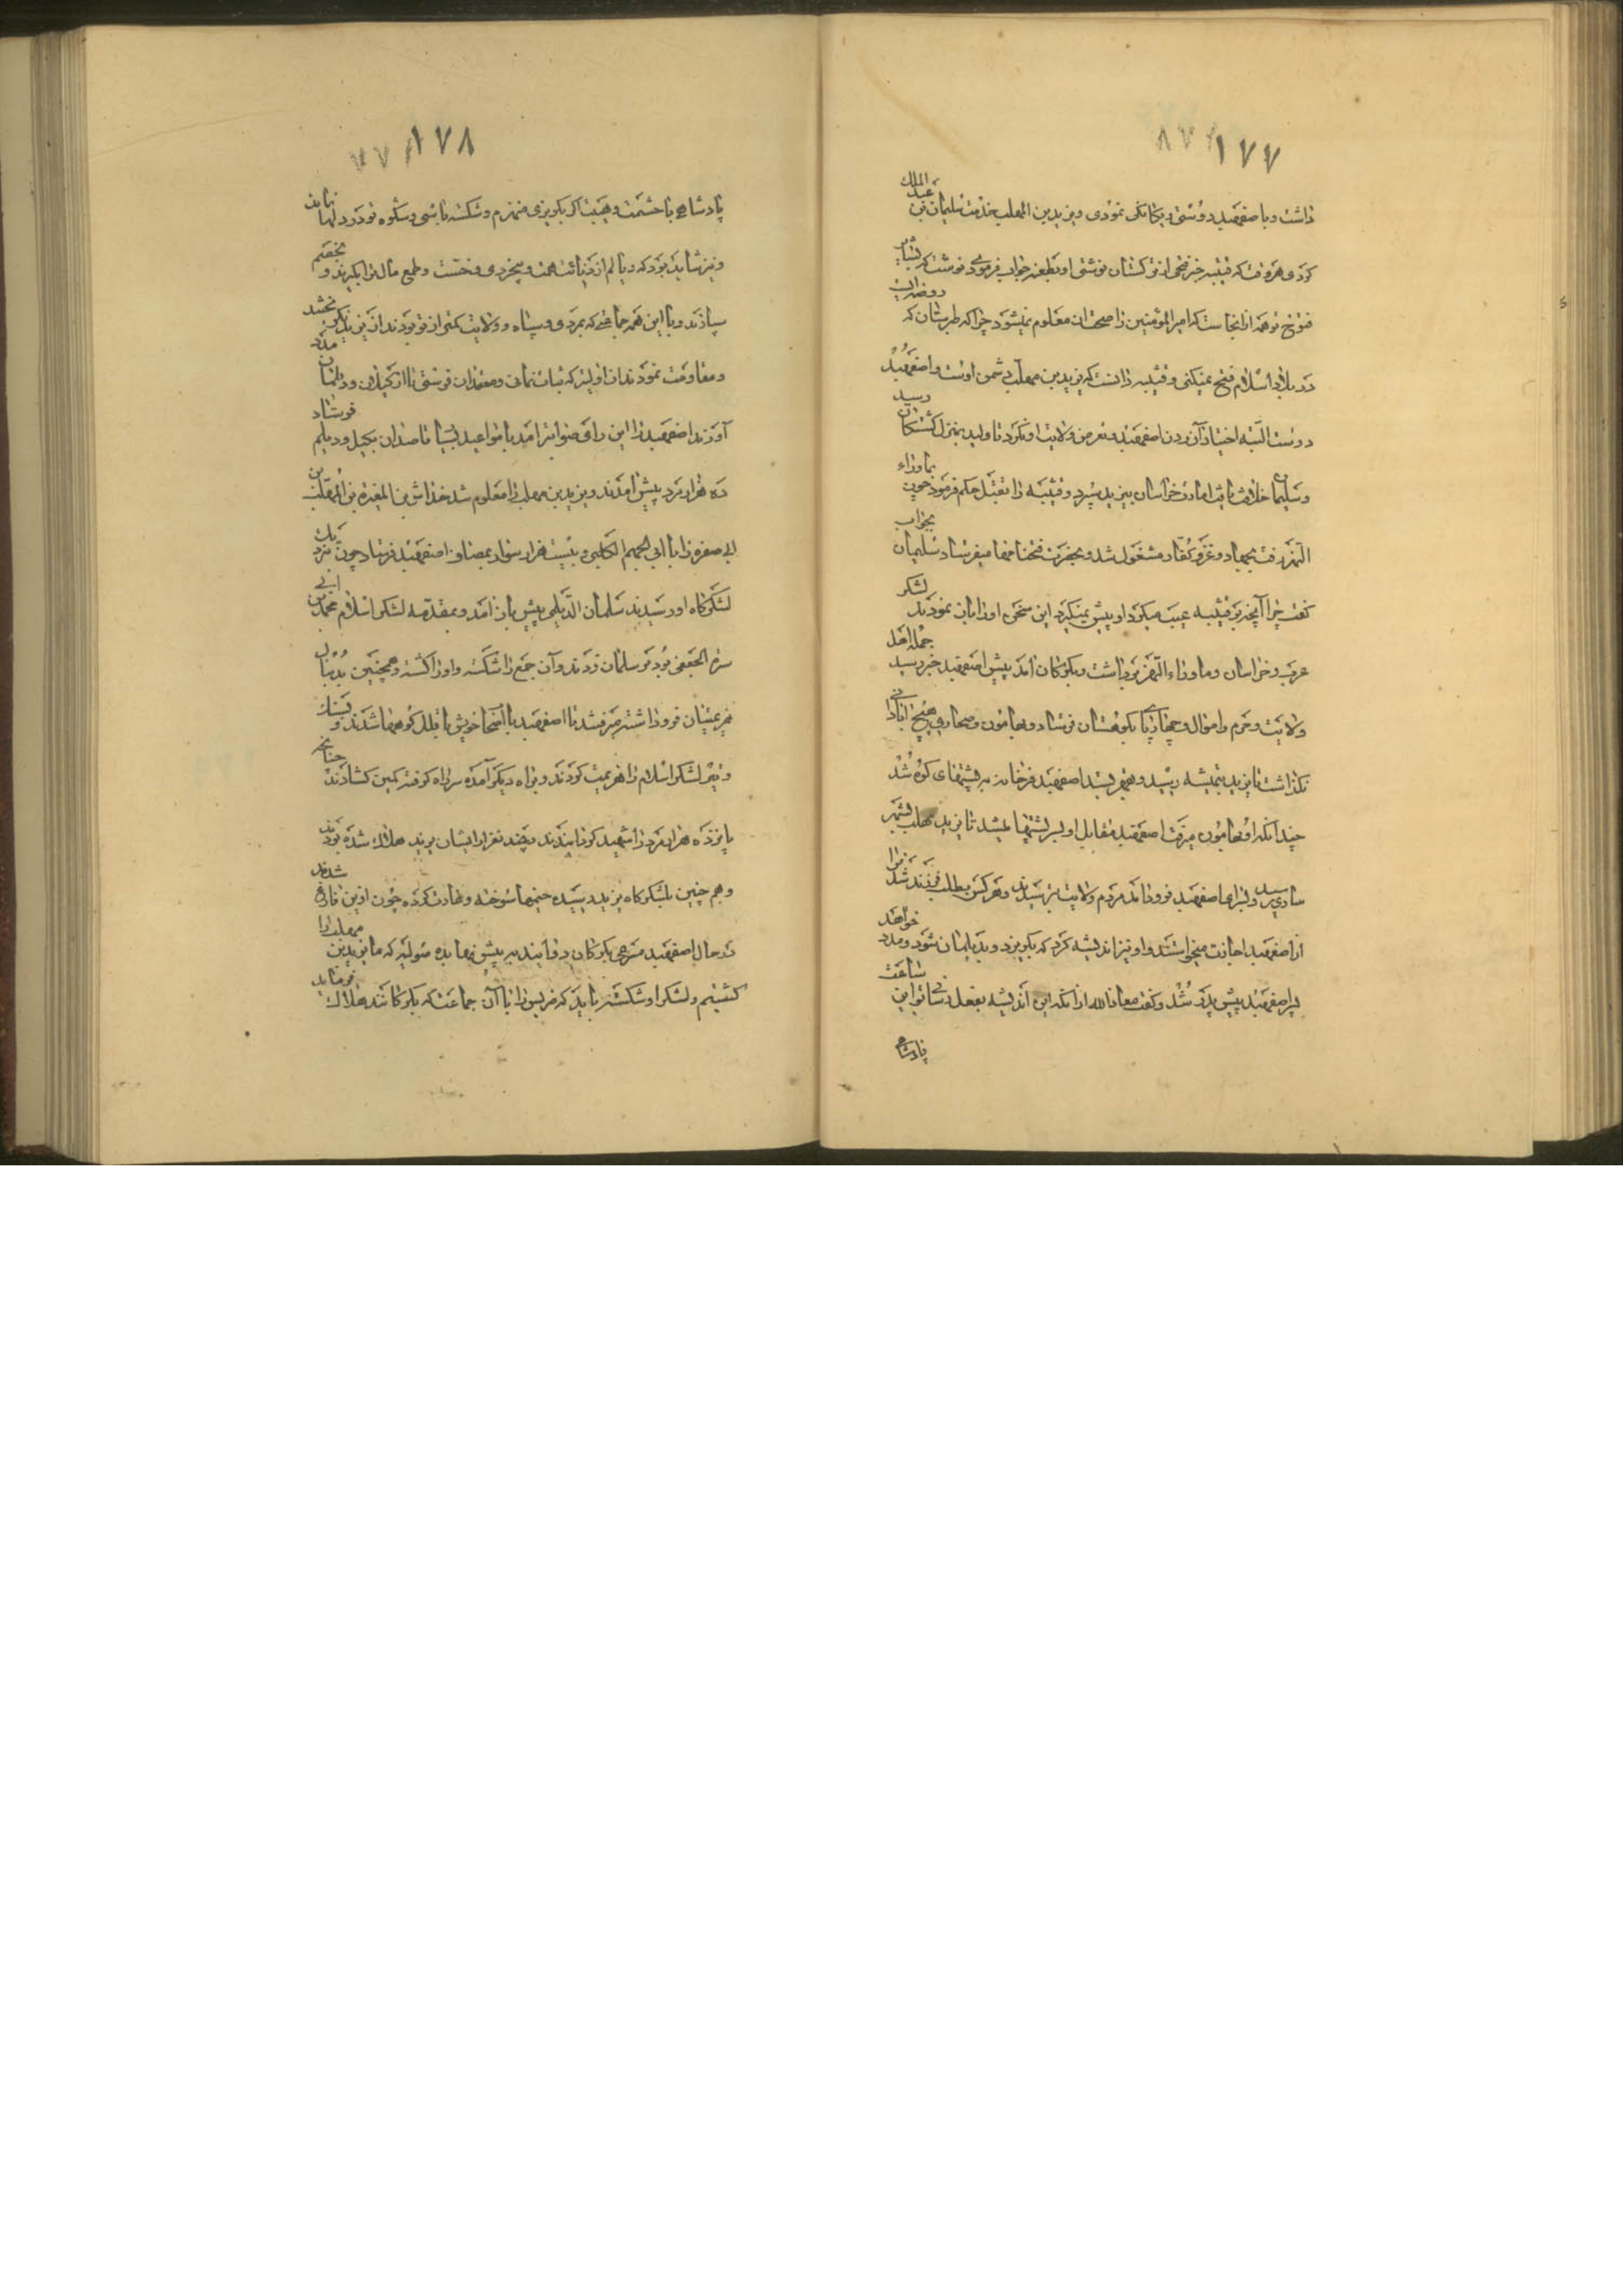 ١٧٧
داشت و با اصفهبد دوستی و یکانکی نمودی و یزید بن المهلب بخدمت سلیمان بن عبد الملک
کردی هر وقت که قتیبه خبر فتحی از ترکستان نوشتی او بطعنه جواب فرمودی نوشت که بشایر
فتوح تو همه از انجاست که امیر المؤمنین را صحت آن معلوم نمیشود چرا که طبرستان که روضه ایست
در بلاد اسلام فتح نمیکنی و قتیبه دانست که یزید بن مهلب دشمن اوست و اصفهبد
دوست البته اختیار آزردن اصفهبد و تعرض ولایت او نکرد تا ولید بمنزل کشتکان رسید
و سلیمان خلافت یافت امارت خراسان بیزید سپرد و قتیبه را بقتل حکم فرمود چون بماوراء
النهر رفت بجهاد و غزو کفار مشغول شد و بحضرت فتحنامها میفرستاد سلیمان بجواب
گفت چرا آنچه بر قتیبه عیب میکرد او پیش نمیگیرد این سخن او را باز نمودند لشکر
عرب و خراسان و ماوراء النهر برداشت و بکرکان آمد پیش اصفهبد خبر رسید جمله اهل
ولایت و حرم و اموال و چهارپای بکوهستان فرستاد و بهامون و صحاری هیچ آبادانی
نگذاشت تا یزید بتمیشه رسید و بقهر بستد اصفهبد فرخان نیز به پشتهای کوه شد
چندانکه او بهامون میرفت اصفهبد مقابل او بر پشتها میشد تا یزید مهلب بشهر
ساری رسید و بسرای اصفهبد فرود آمد مردم ولایت بترسیدند و هر کس بطلب فرزند شد فرا
از اصفهبد اجازت میخواستند و او نیز اندیشه کرد که بگریزد و بدیلمان شود و مدد خواهد
پسر اصفهبد پیش پدر شد و گفت معاذ الله از آنکه این اندیشه بفعل رسانی تو این ساعت
پادشاهی
١٧٨
پادشاهی با حشمت و هیبت اگر بگریزی منهزم و شکسته باشی و شکوه تو در دلها نماند
و نیز شاید بود که دیالم از دنائت همت و بیخردی و خست و طمع مال ترا بگیرند و بخصم
سپارند و با این همه جماعتی که بمردی و سپاه و ولایت کمتر از تو بودند از یزید نگریختند
و مقاومت نمودند آن اولیتر که ثبات نمائی و معتمدان فرستی تا از گیلان و دیلمان مدد
آورند اصفهبد را این رای صواب آمد با مواعید بسیار قاصدان بگیل و دیلم فرستاد
ده هزار مرد پیش آمدند و یزید بن مهلب را معلوم شد خداش بن المغیره بن المهلب بن
ابی صفره را با ابی الجهم الکلبی و بیست هزار سوار بمصاف اصفهبد فرستاد چون نزدیک
لشکرگاه او رسیدند سلمان الدیلمی پیش باز آمد و بمقدمه لشکر اسلام محمد بن ابی
سبره الجعفی بود بر سلمان زدند و آن جمع را شکسته و او را کشته و همچنین بدنبال
هزیمتیان فرو داشته میرفتند تا اصفهبد با اصحاب خویش باقلل کوهها شدند و بسنگ
و تیر لشکر اسلام را هزیمت کردند و براه دیگر آمده سر راه گرفته کمین گشادند چنانچه
پانزده هزار مرد را شهید گردانیدند و چند نفر از ایشان یزید هلاک شده بودند
و هم چنین بلشکرگاه یزید رسیده خیمها سوخته و غارت کرده چون ازین فارغ شدند
در حال اصفهبد مسرعی بکرکان دوانید به پیش نهابده صولیه که ما یزید بن مهلب را
کشتیم و لشکر او شکسته باید که نفریس را با آن جماعت که بکرکانند هلاک فرماید